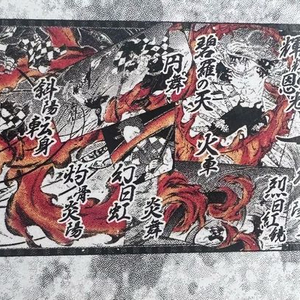 碧羅の天
円舞
斜陽転身
火車
烈日紅鏡
炎舞
幻日虹
灼骨炎陽